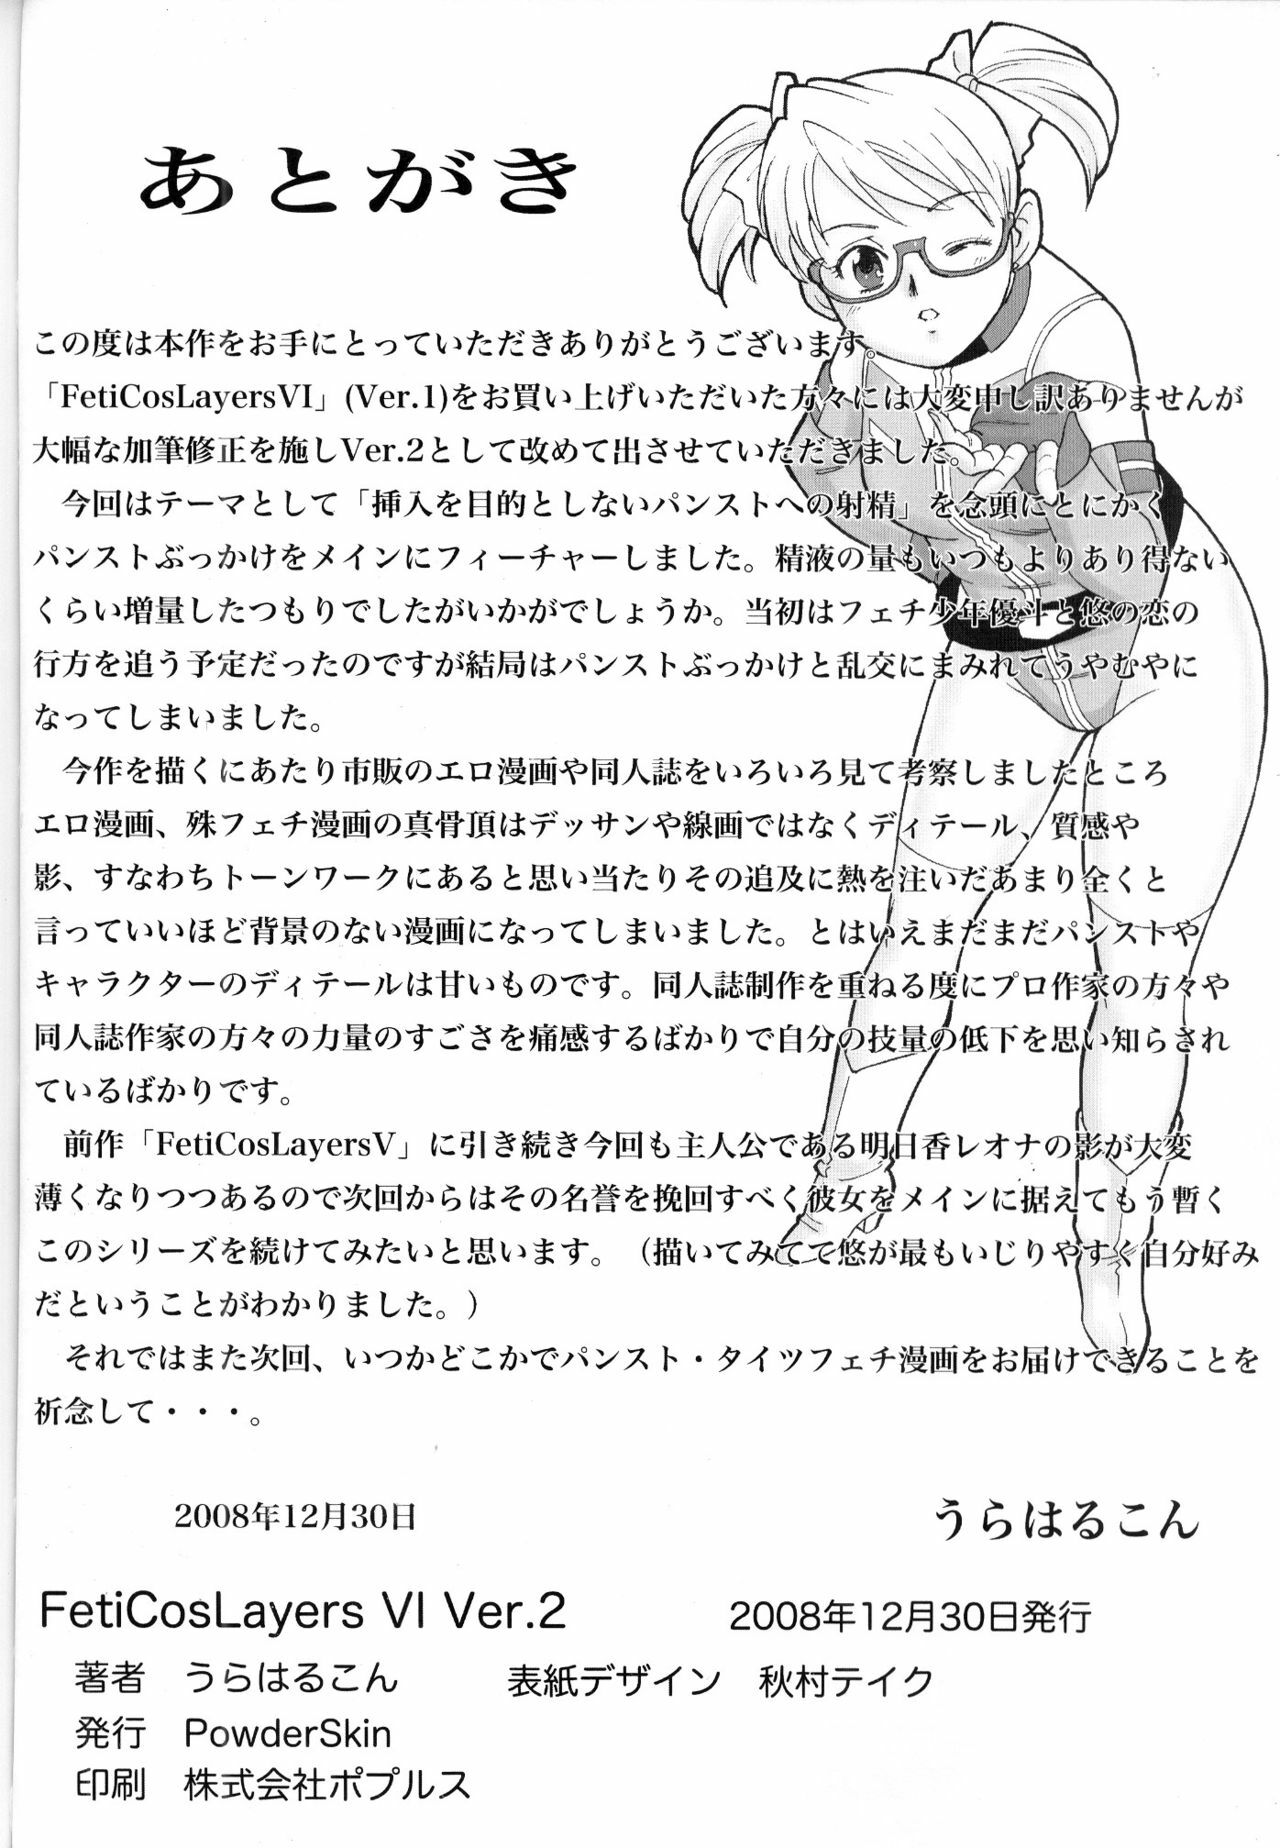 あとがき
この度は本作をお手にとっていただきありがとうございます。
「FetiCosLayersVI」(Ver.1)をお買い上げいただいた方々には大変申し訳ありませんが
大幅な加筆修正を施しVer.2として改めて出させていただきました。
　今回はテーマとして「挿入を目的としないパンストへの射精」を念頭にとにかく
パンストぶっかけをメインにフィーチャーしました。精液の量もいつもよりあり得ない
くらい増量したつもりでしたがいかがでしょうか。当初はフェチ少年優斗と悠の恋の
行方を追う予定だったのですが結局はパンストぶっかけと乱交にまみれてうやむやに
なってしまいました。
　今作を描くにあたり市販のエロ漫画や同人誌をいろいろ見て考察しましたところ
エロ漫画、殊フェチ漫画の真骨頂はデッサンや線画ではなくディテール、質感や
影、すなわちトーンワークにあると思い当たりその追及に熱を注いだあまり全くと
言っていいほど背景のない漫画になってしまいました。とはいえまだまだパンストや
キャラクターのディテールは甘いものです。同人誌制作を重ねる度にプロ作家の方々や
同人誌作家の方々の力量のすごさを痛感するばかりで自分の技量の低下を思い知らされ
ているばかりです。
　前作「FetiCosLayersV」に引き続き今回も主人公である明日香レオナの影が大変
薄くなりつつあるので次回からはその名誉を挽回すべく彼女をメインに据えてもう暫く
このシリーズを続けてみたいと思います。（描いてみてて悠が最もいじりやすく自分好み
だということがわかりました。）
　それではまた次回、いつかどこかでパンスト・タイツフェチ漫画をお届けできることを
祈念して・・・。
2008年12月30日　うらはるこん
FetiCosLayers VI Ver.2　2008年12月30日発行
著者　うらはるこん　表紙デザイン　秋村テイク
発行　PowderSkin
印刷　株式会社ポプルス